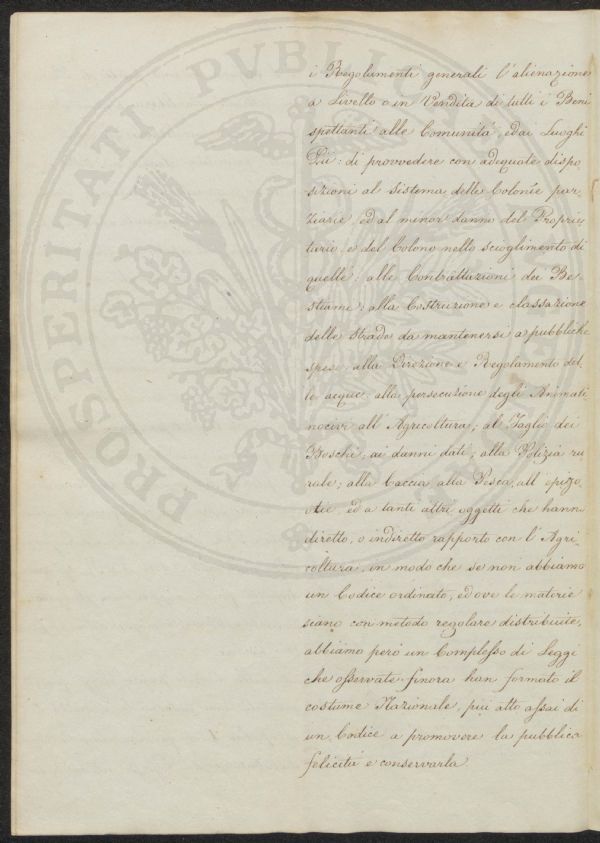 i Regolamenti generali l'alienazione
a Livello o in Vendita di tutti i Beni
spettanti alle Comunità, ed ai Luoghi
Pii: di provvedere con adequate dispo
sizioni al Sistema delle Colonìe par-
ziarie, ed al minor danno del Proprie-
tario, e del Colono nello scioglimento di
quelle: alle Contrattazioni dei Be-
stiami: alla Costruzione e classazione
delle Strade da mantenersi a pubbliche
spese: alla Direzione e Regolamento del-
le acque, alla persecuzione degli Animali
nocivi all'Agricoltura; al Taglio dei
Boschi; ai danni dati; alla Polizia ru
rale; alla Caccia, alla Pesca, all'epizo
otie, ed a tanti altri oggetti che hanno
diretto, o indiretto rapporto con l'Agri-
coltura, in modo che se non abbiamo
un Codice ordinato, ed ove le materie
siano con metodo regolare distribuite,
abbiamo però un Complesso di Leggi
che osservate finora han formato il
costume Nazionale, più atto assai di
un Codice a promovere la pubblica
felicità e conservarla.
PROSPERITATI PVBLICAE